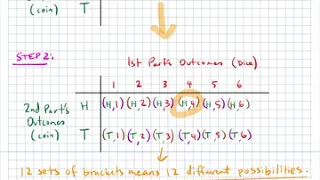 (coin) T
STEP 2:
1st Part's Outcomes (Dice)
1 2 3 4 5 6
2nd Part's H (H,1) (H,2) (H,3) (H,4) (H,5) (H,6)
Outcomes
(coin) T (T,1) (T,2) (T,3) (T,4) (T,5) (T,6)
12 sets of brackets means 12 different possibilities.